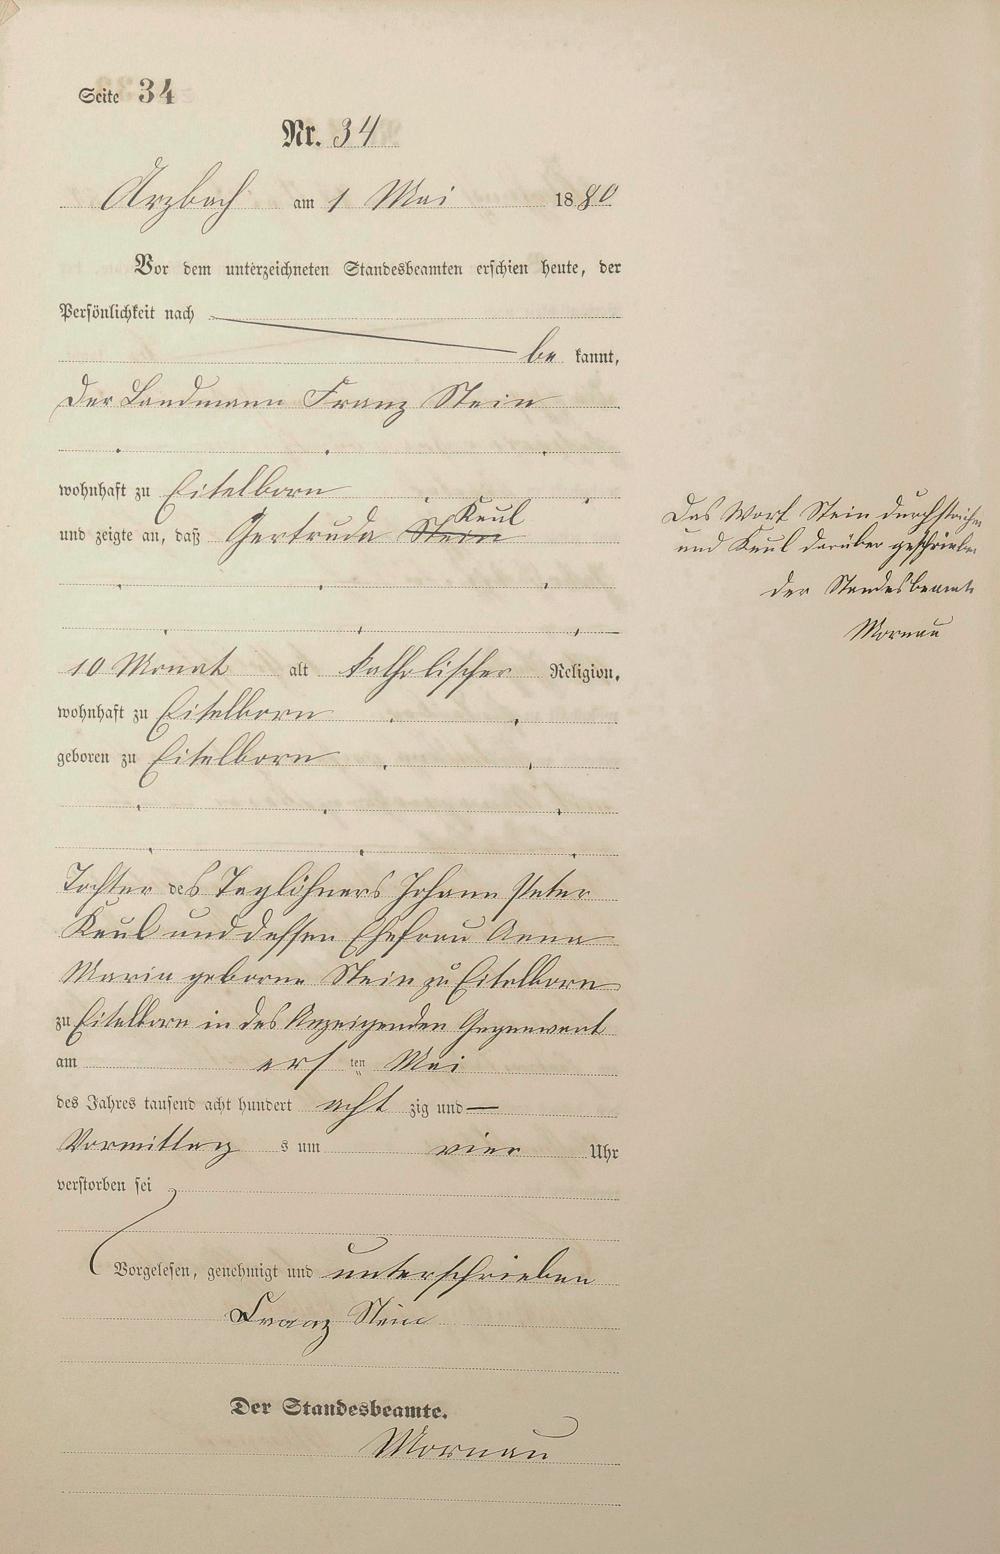 Seite 34
Nr. 34
Arzbach am 1 Mai 1880
Vor dem unterzeichneten Standesbeamten erschien heute, der
Persönlichkeit nach
be kannt,
der Landmann Franz Stein
wohnhaft zu Eitelborn
Keul
und zeigte an, daß Gertruda Stein
10 Monat alt katholischer Religion,
wohnhaft zu Eitelborn
geboren zu Eitelborn
Tochter des Taglöhners Johann Peter
Keul und dessen Ehefrau Anna
Maria geborne Stein zu Eitelborn
zu Eitelborn in des Anzeigenden Gegenwart
am ersten Mai
des Jahres tausend acht hundert acht zig und
Vormittag s um vier Uhr
verstorben sei
Vorgelesen, genehmigt und unterschrieben
Franz Stein
Der Standesbeamte.
Mornau
Das Wort Stein durchstrichen
und Keul darüber geschrieben
der Standesbeamte
Mornau